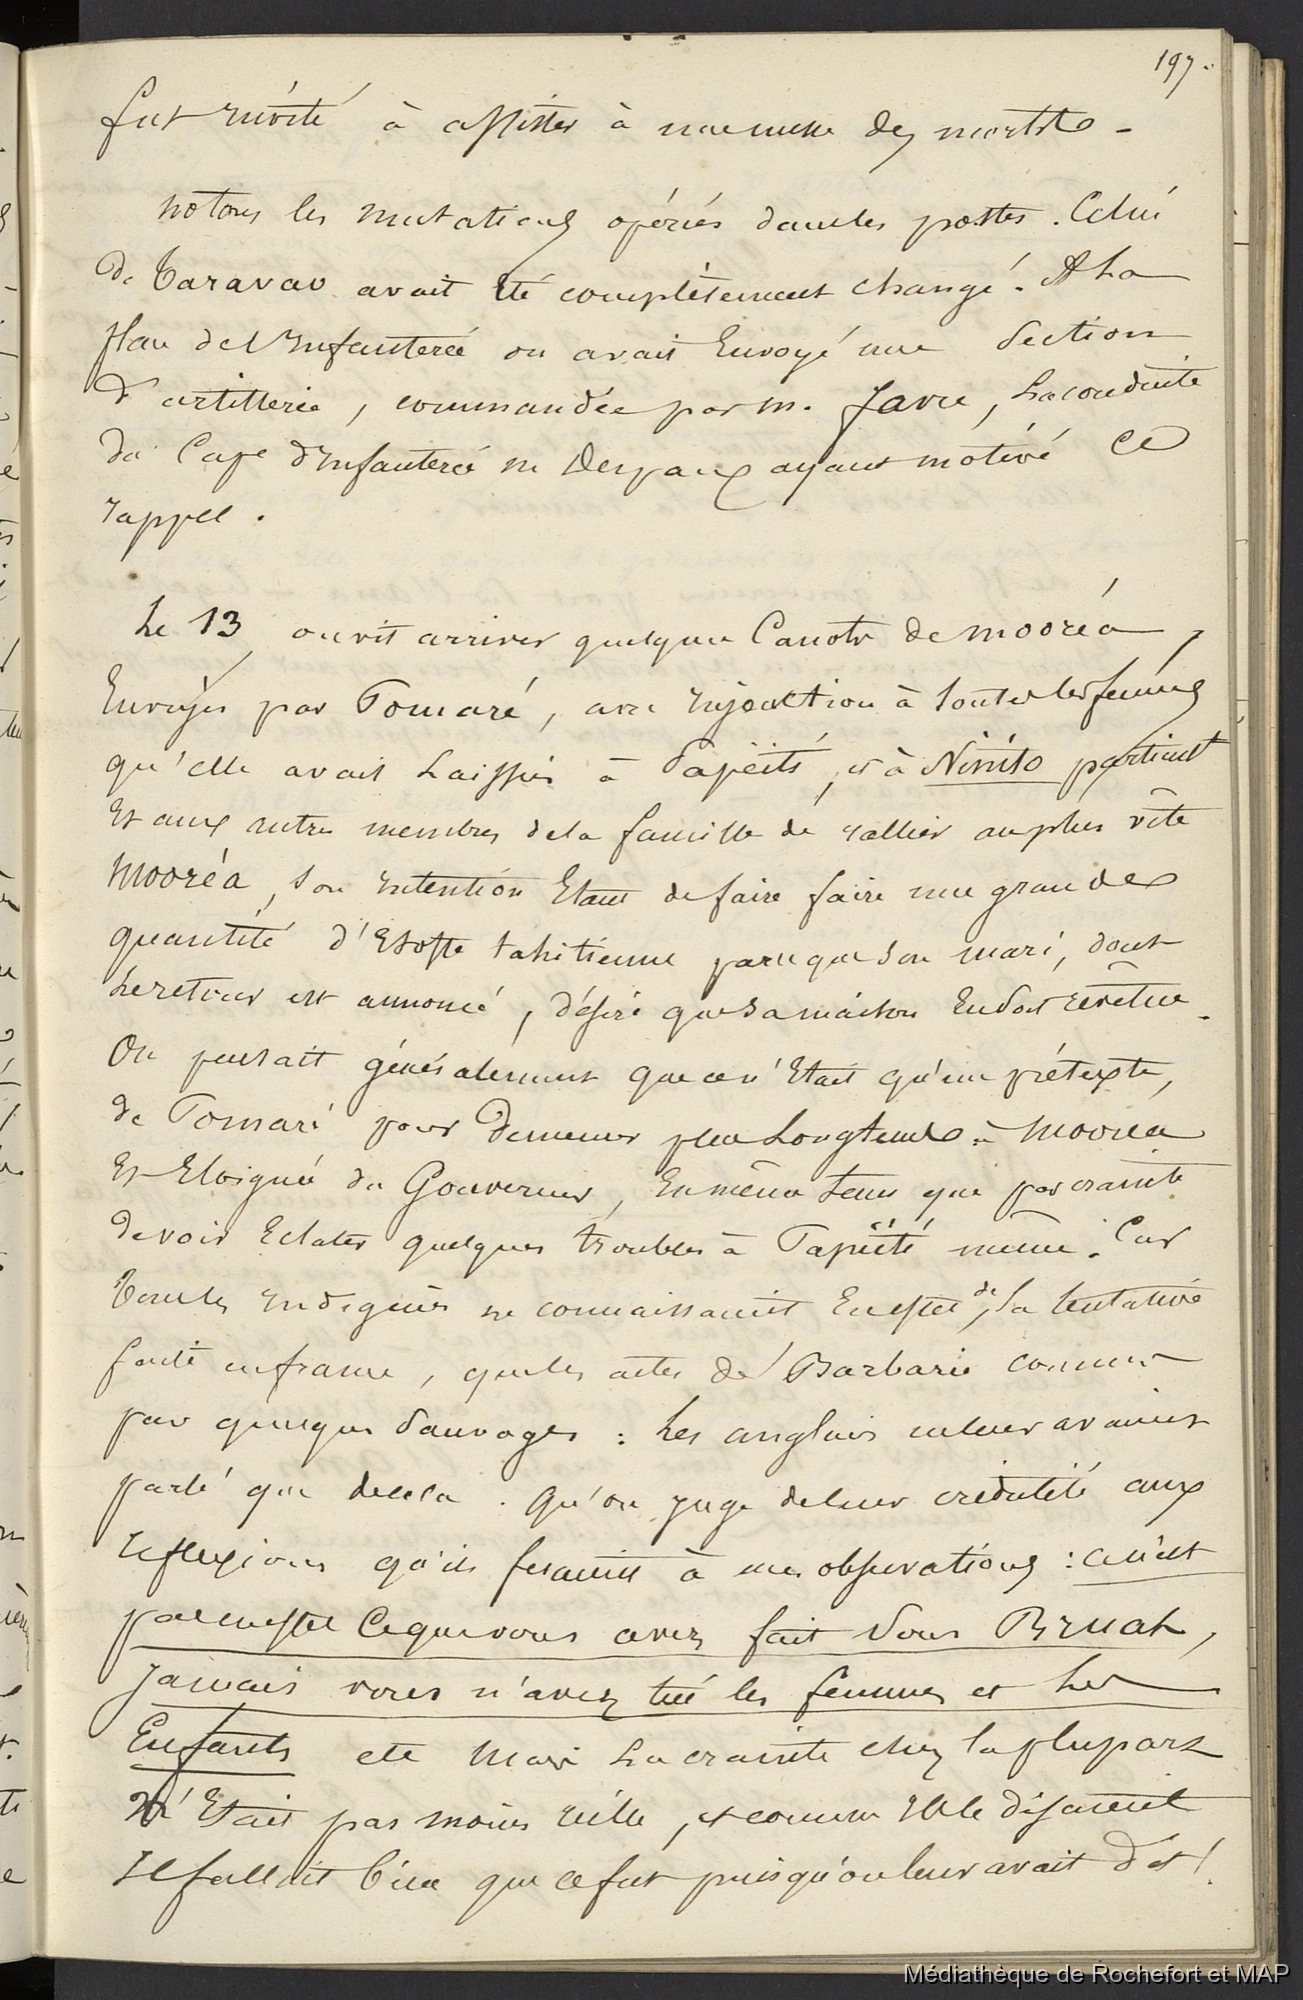 197.
fut invité à assister à une messe des morts.
notons les mutations opérées dans les postes. Celui
de Taravao avait été complètement changé. A la
place de l'infanterie on avait Envoyé une Section
d'artillerie, commandée par m. Javre, La conduite
du Cape d'infanterie m ayant motivé ce
rappel.
Le 13 on vit arriver quelques Canots de mooréa,
Envoyés par Pomaré, avec injonction à toutes les femmes
qu'elle avait Laissées à Papéïté, et à Ninito particult
Et aux autres membres de la famille de rallier au plus vite
Mooréa, Son intention Etant de faire faire une grande
quantité d'Etoffe tahitienne parceque Son mari, dont
Le retour est annoncé, désire que Sa maison En Soit revêtue.
On pensait généralement que ce n'Etait qu'un prétexte,
de Pomaré pour demeurer plus Longtemps à Mooréa
Et Eloignée du Gouverneur, En même tems que par crainte
de voir Eclater quelques troubles à Papéïté même. Car
Tous les indigènes ne connaissaient En effet de la tentative
faite en france, que les actes de Barbarie commis
par quelques Sauvages : Les anglais ne leur avaient
parlé que de cela. Qu'on juge de leur crédulité aux
réflexions qu'ils fesaient à mes observations : ce n'est
pas en effet Ce que vous avez fait Vous Bruat,
Jamais vous n'avez tué les femmes et Les
Enfants etc Mais La crainte chez la plupart
n'Etait pas moins réelle, et comme Elle disaient
Il fallait bien que ce fut puisqu'on leur avait dit !
Médiathèque de Rochefort et MAP